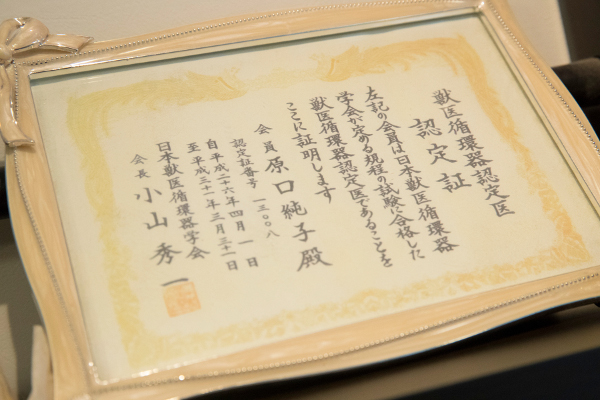 獣医循環器認定医
認定証
左記の会員は日本獣医循環器
学会が定める規程の試験に合格した
獣医循環器認定医であることを
ここに証明します
会員 原口純子殿
認定証番号 一三〇〇八
自平成二十六年四月一日
至平成三十一年三月三十一日
日本獣医循環器学会
会長 小山秀一